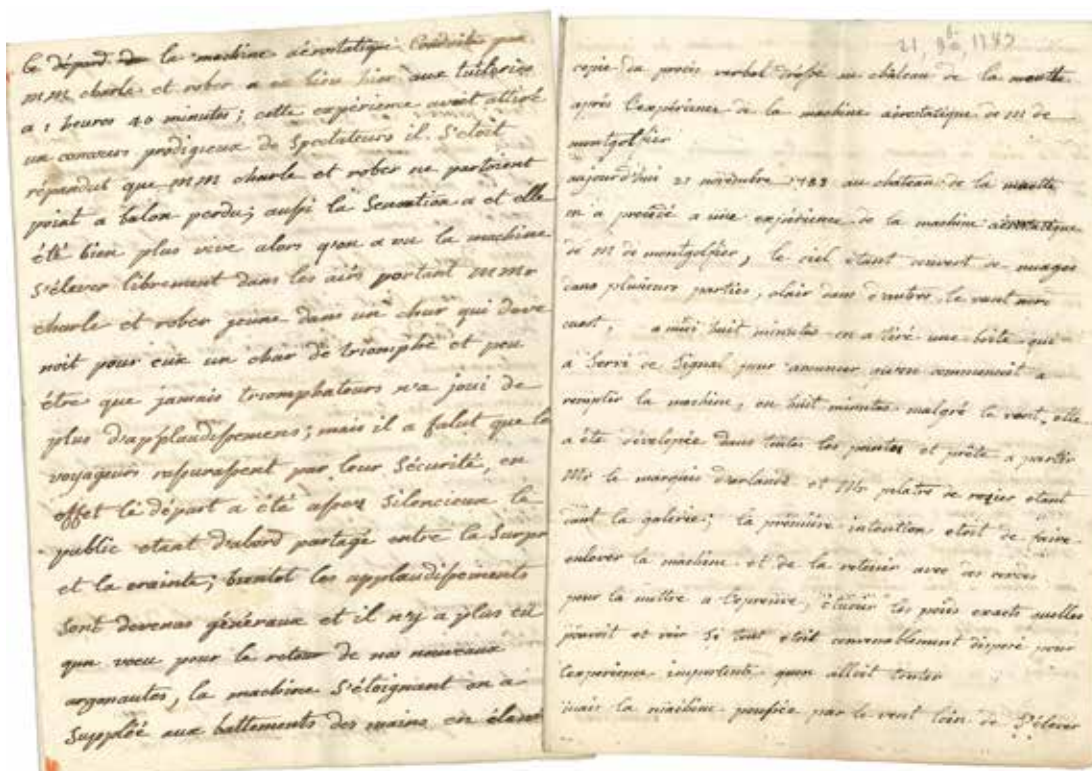 le départ de la machine aérostatique conduite par
MM charle et rober a eu lieu hier aux tuileries
a 1 heures 40 minutes; cette expérience avoit attiré
un concours prodigieux de Spectateurs il S'étoit
répandut que MM charle et rober ne partoient
point a balon perdu; aussi la Sensation a et elle
été bien plus vive alors qu'on a vu la machine
S'élever librement dans les airs portant MMrs
charle et rober jeune dans un char qui deve
noit pour eux un char de triomphe et peu
être que jamais triomphateurs n'a joui de
plus d'applaudissemens; mais il a falut que les
voyageurs rassurassent par leur Sécurité, en
effet le départ a été assez Silencieux le
public etant d'abord partagé entre la Surpr
et la crainte; bientot les applaudissements
Sont devenus généraux et il n'y a plus eu
qun voeu pour le retour de nos nouveaux
argonautes, la machine S'éloignant on a
Suppléé aux battements des mains en
21 9bre 1783
copie du procès verbal dressé au château de la muette
après l'expériance de la machine aérostatique de M de
montgolfier
aujourd'hui 21 novembre 1783 au château de la muette
on a procédé a une expérience de la machine aérostatique
de M de montgolfier, le ciel étant couvert de nuages
dans plusieurs parties, clair dans d'autres, le vent nore
ouest, a midi huit minutes on a tiré une boîte qui
a Servi de Signal pour annoncer qu'on commencoit a
remplir la machine, en huit minutes malgré le vent, elle
a été dévelopée dans toutes les points et prête a partir
Mr le marquis d'arlande et Mr pilatre de rozier etant
dant la galerie; la première intention etoit de faire
enlever la machine et de la retenir avec des cordes
pour la mettre a l'epreuve, étudier les poids exacts quelles
pouvoit et voir Si tout etoit convenablement disposé pour
l'experience importente quon alloit tenter
mais la machine poussée par le vent loin de S'élever